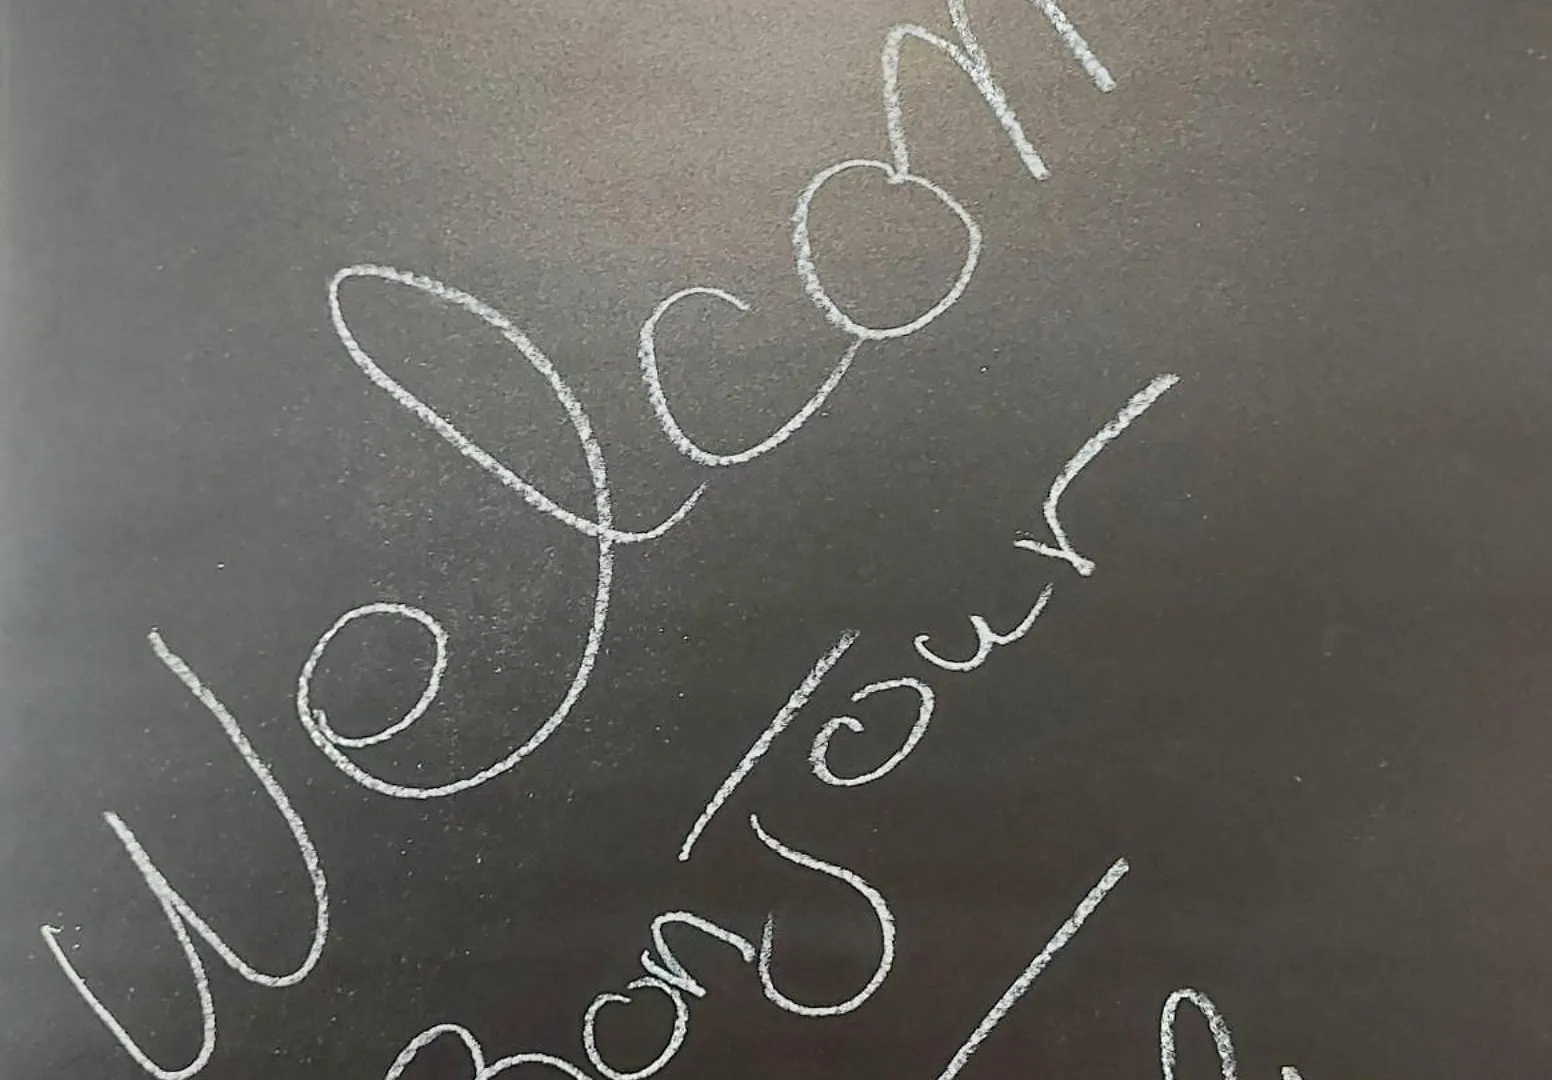 Welcom
BonJour